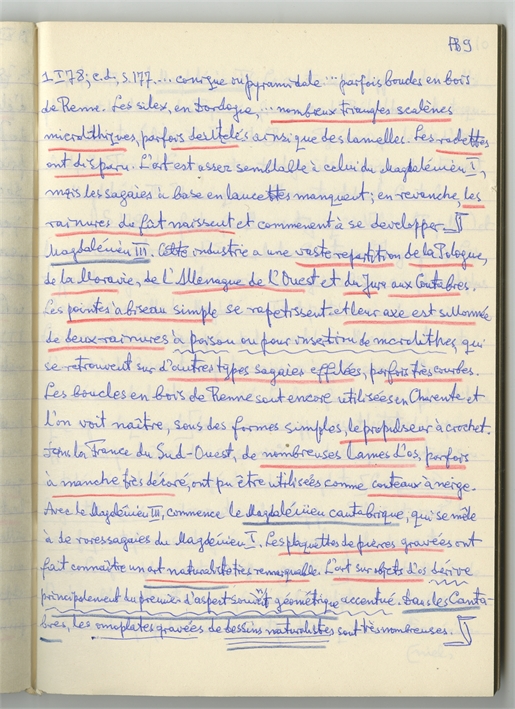 AB9
1. I 78; c.d., S.177.... conique ou pyramidale... parfois boucles en bois
de Renne. Les silex, en Dordogne, ... nombreux triangles scalènes
microlithiques, parfois denticulés ainsi que des lamelles. Les raclettes
ont disparu. L'art est assez semblable à celui du Magdalénien I,
mais les sagaies à base en lancettes manquent; en revanche, les
rainures du fût naissent et commencent à se developper.
Magdalénien III. Cette industrie a une vaste repartition de la Pologne,
de la Moravie, de L'Allemagne de L'Ouest et du Jura aux Cantabres.
Les pointes à biseau simple se rapetissent et leur axe est sillonnée
de deux rainures à poison ou pour insertion de microlithes, qui
se retrouvent sur d'autres types sagaies effilées, parfois très courbes.
Les boucles en bois de Renne sont encore utilisées en Charente et
l'on voit naître, sous des formes simples, le propulseur à crochet.
Dans la France du Sud-Ouest, de nombreuses lames d'os, parfois
à manche très décoré, ont pu être utilisées comme couteaux à neige.
Avec le Magdénien III, commence le Magdalénien cantabrique, qui se mêle
à de rares sagaies du Magdénien I. Les plaquettes de pierres gravées ont
fait connaître un art naturaliste très remarquable. L'art sur objets d'os dérive
principalement du premier d'aspect souvent géométrique accentué. Dans les Canta-
bres, les omoplates gravées de dessins naturalistes sont très nombreuses.